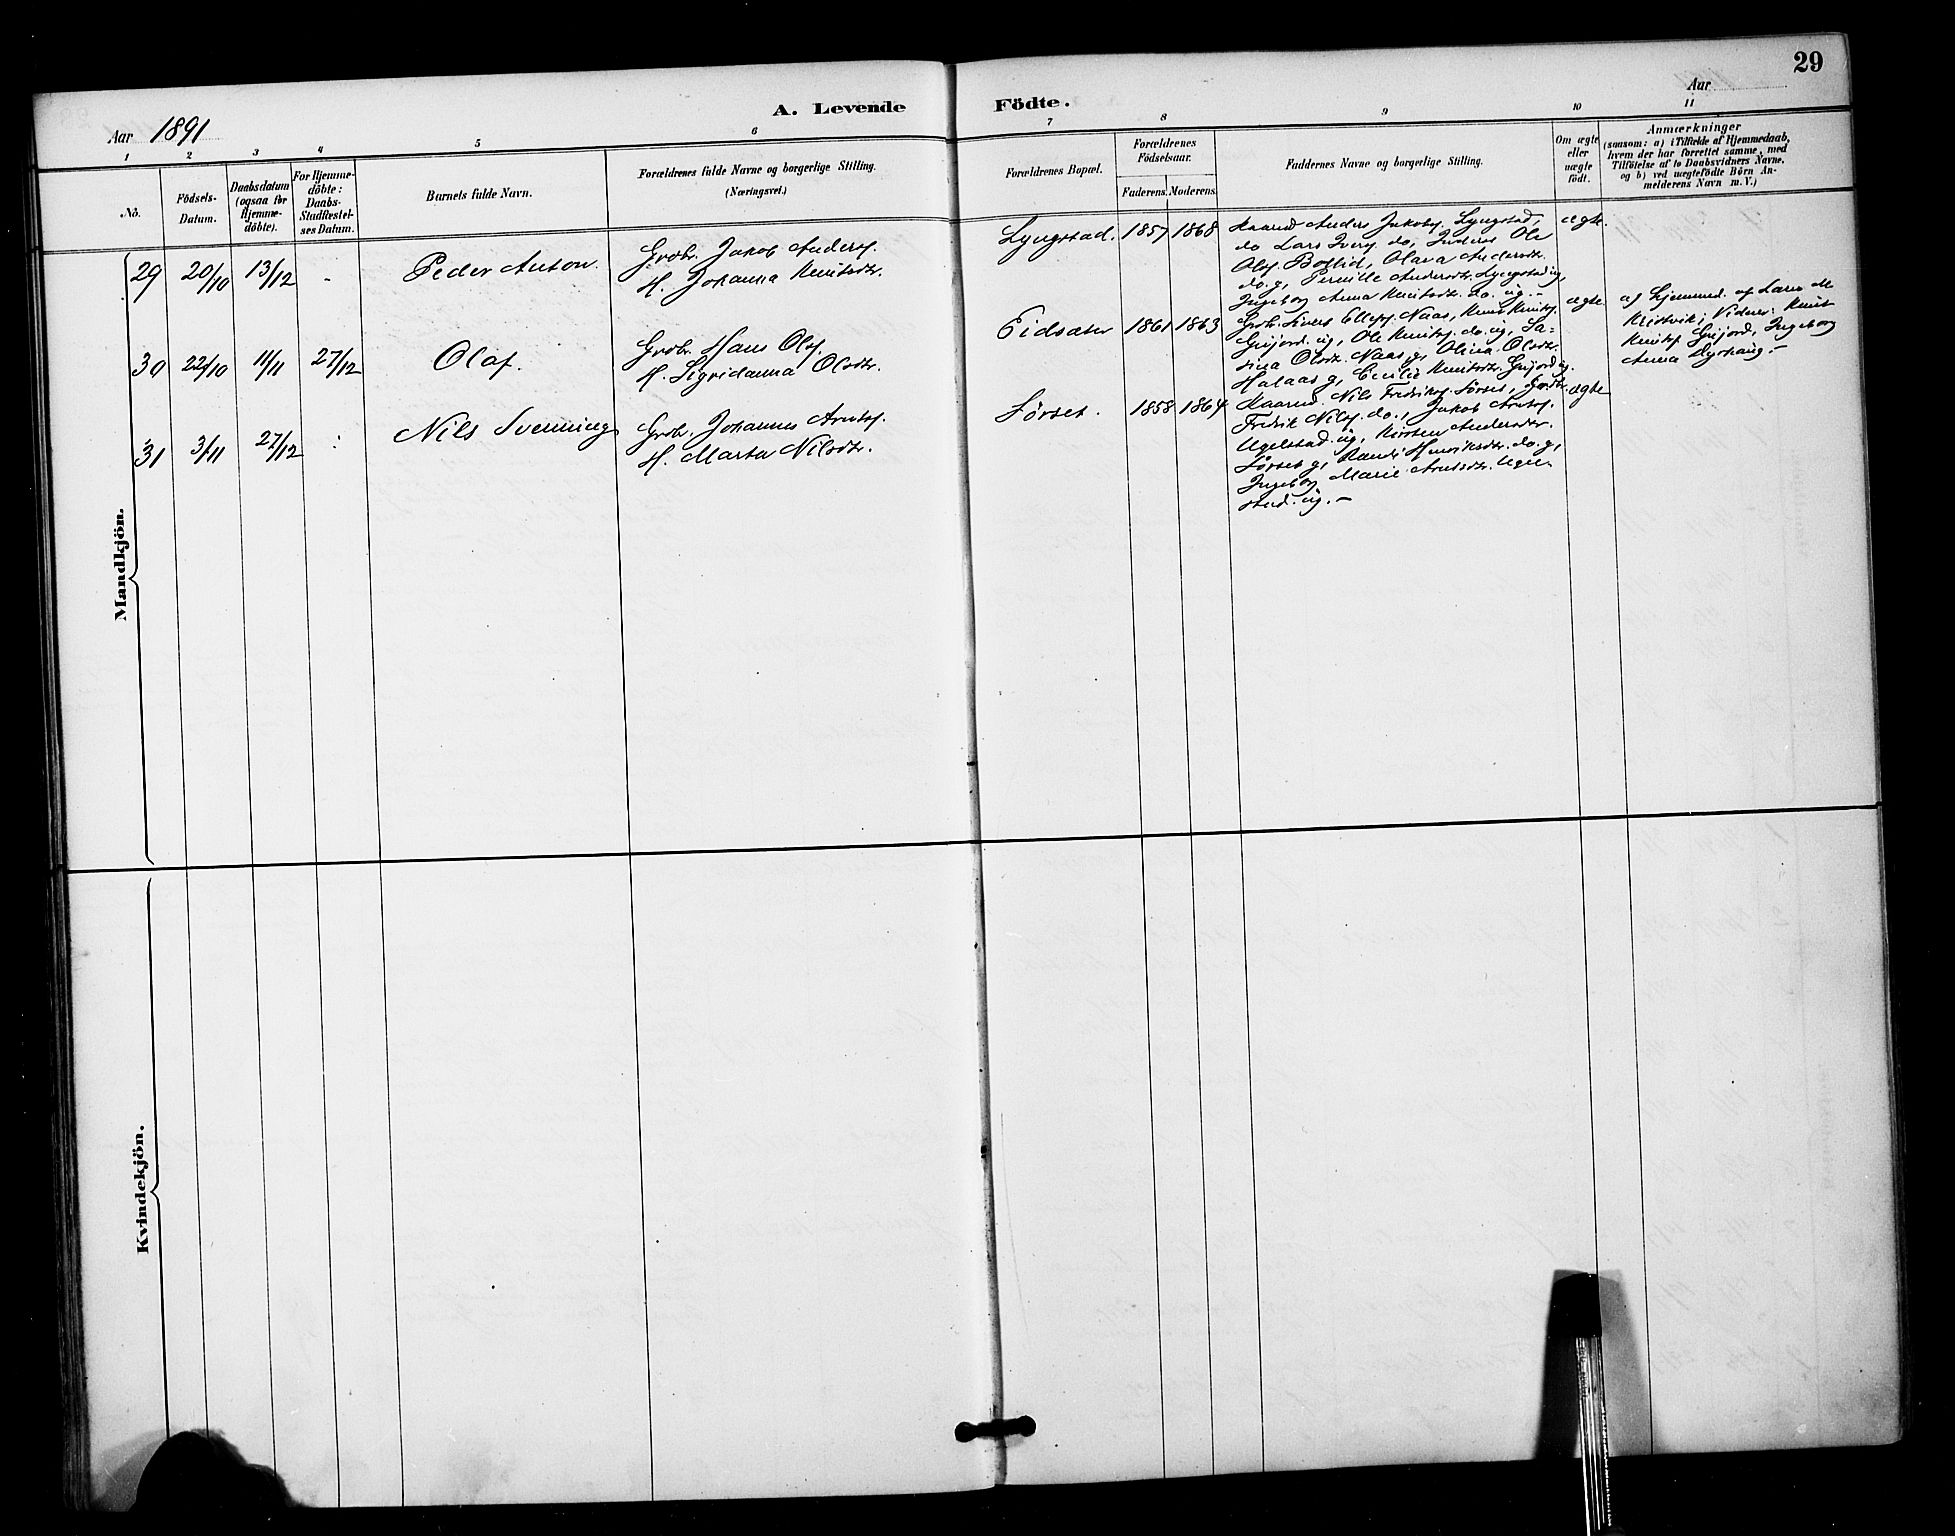 29
A. Levende Födte.
Aar 1891
Aar
1 2 3 4 5 6 7 8 9 10 11
No.
Födsels-
Datum.
Daabsdatum
(ogsaa for
Hjemme-
döbte).
For Hjemme-
döbte:
Daabs-
Stadfæstel-
ses Datum.
Barnets fulde Navn.
Forældrenes fulde Navne og borgerlige Stilling.
(Næringsvei.)
Forældrenes Bopæl.
Forældrenes
Födselsaar.
Faderens. Moderens.
Faddernes Navne og borgerlige Stilling.
Om ægte
eller
uægte
födt.
Anmærkninger
(saasom: a) i Tilfælde af Hjemmedaab,
hvem der har forrettet samme, med
Tilföielse af to Daabsvidners Navne,
og b) ved uægtefödte Börn An-
melderens Navn m. V.)
Mandkjön.
29 20/10 13/12 - Peder Anton.
Grdbr. Jakob Anders.
H. Johanna Knutsdtr.
Lyngstad. 1857 1868
Kaarmd Anders Jakobs. Lyngstad,
do Lars Ivers. do, Inderst Ole
Ols. Bollid, Olava Andersdtr.
do. g, Pernille Andersdtr. Lyngstad ug,
Ingeborg Anna Knutsdtr. do. ug. -
ægte.
30 22/10 11/11 27/12 Olaf.
Grdbr. Hans Ols.
H. Sigridanna Olsdtr.
Eidsæter 1861 1863
Grdbr. Sivert Ellefs. Naas, Knut Knuts.
Grijord. ug, Ole Knuts. do. ug, Sa-
sina Olsdtr. Naas g, Olina Olsdtr.
Halaas g, Cecilie Knutsdtr. Grijord ug.
ægte
a) Hjemmed. af Lars M
Kristvik; Vidner: Knut
Knuts. Grijord, Ingeborg
Anna Dyrhaug. -
31 3/11 27/12 : Nils Svenning
Grdbr. Johannes Arnts.
H. Marta Nilsdtr.
Sørset. 1858 1864
Kaarmd. Nils Fredriks. Sørset, Grdbr.
Fredrik Nils. do., Jakob Arnts.
Ugelstad. ug, Kirsten Andersdtr.
Sørset g, Randi Henriksdtr. do. g,
Ingeborg Marie Arntsdtr. Ugel-
stad. ug. -
ægte
Kvindekjön.